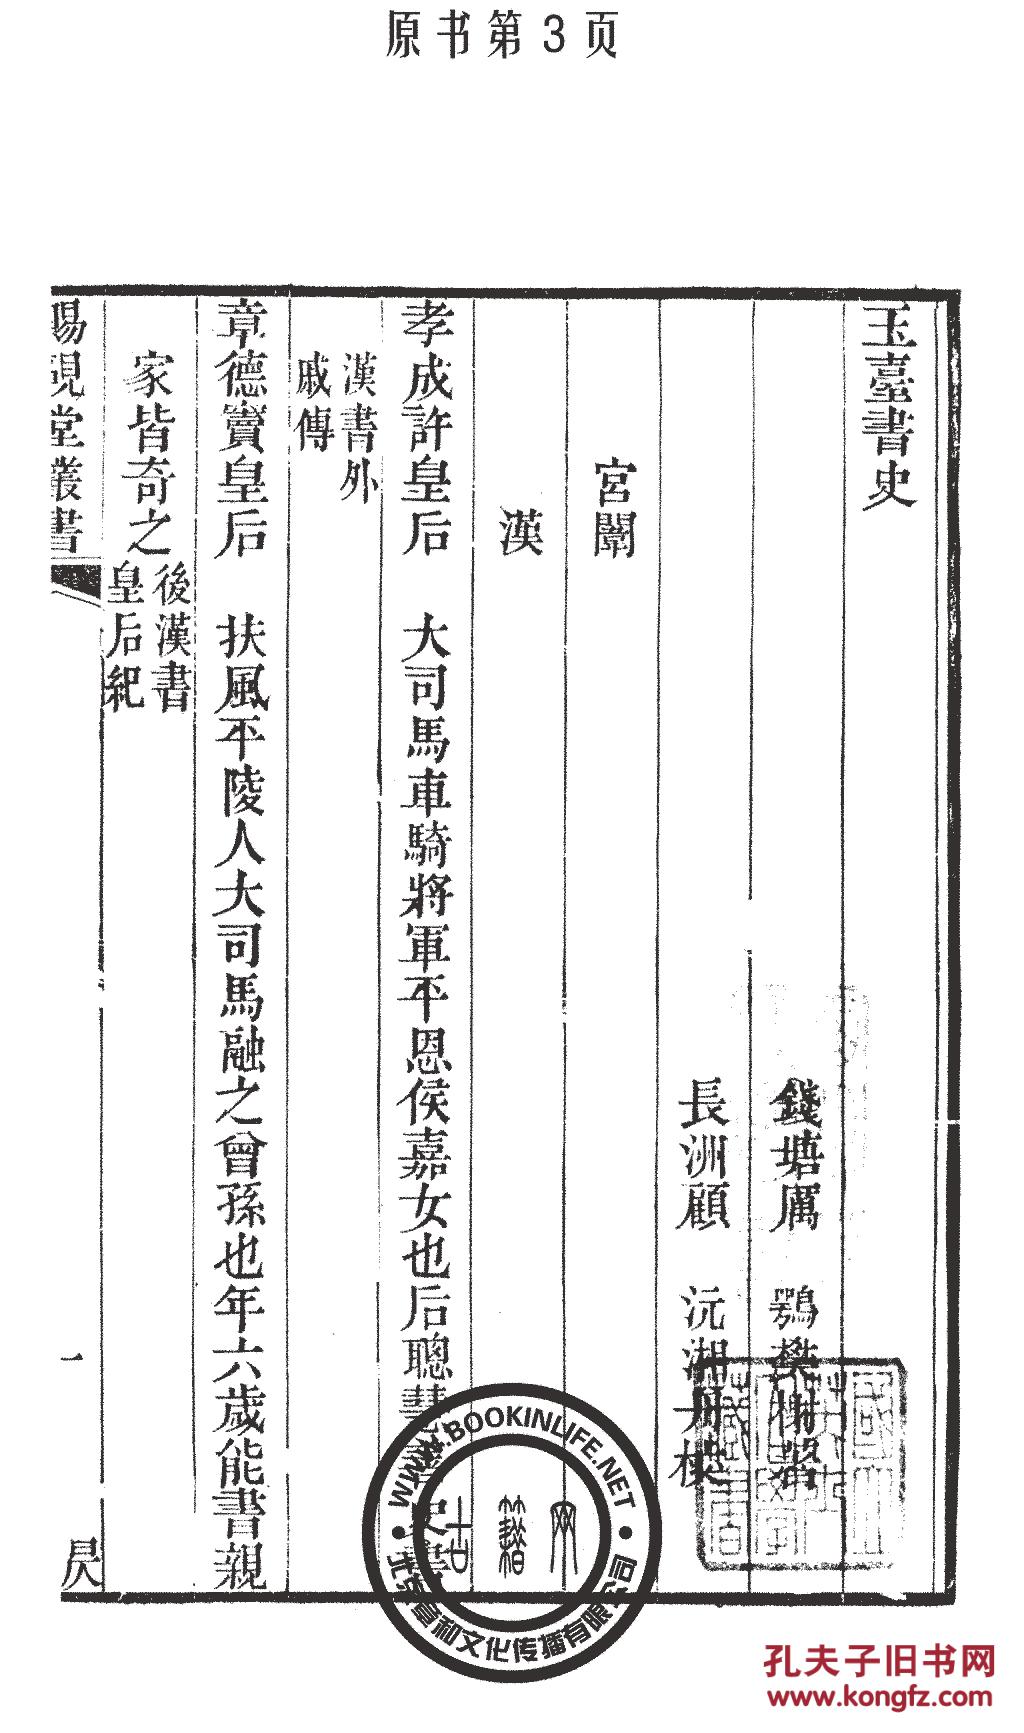 原书第3页
玉臺書史
錢塘厲 鶚樊榭輯
長洲顧 沅湘舟校
宮闈
漢
孝成許皇后 大司馬車騎將軍平恩侯嘉女也后聰慧善史書
漢書外
戚傳
章德竇皇后 扶風平陵人大司馬融之曾孫也年六歲能書親
家皆奇之
後漢書
皇后紀
賜硯堂叢書
一
昃
WWW.BOOKINLIFE.NET
北京章和文化传播有限公司
孔夫子旧书网
www.kongfz.com